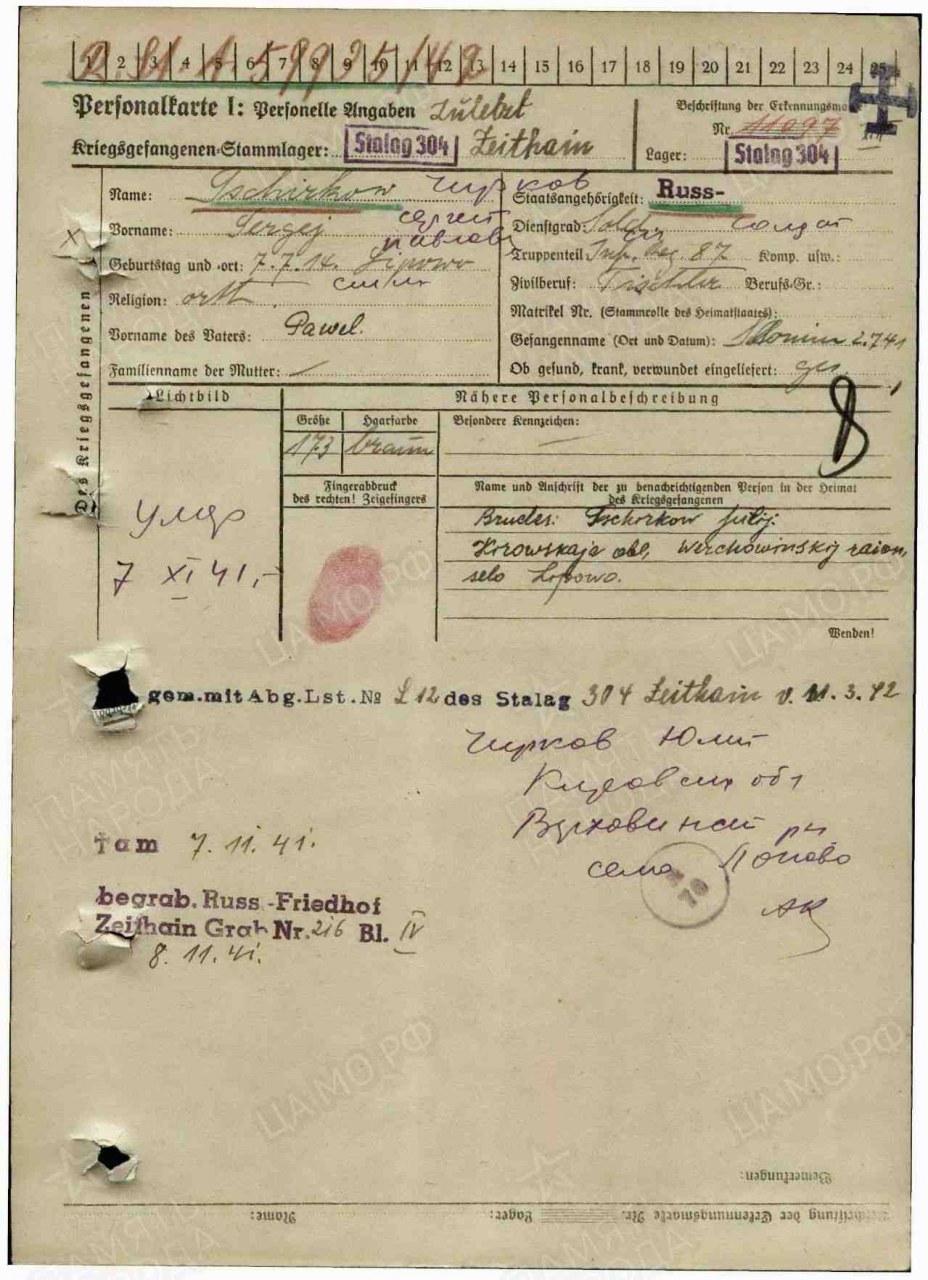 1 2 3 4 5 6 7 8 9 10 11 12 13 14 15 16 17 18 19 20 21 22 23 24 25
Personalkarte I: Personelle Angaben zuletzt
Beschriftung der Erkennungsma
Kriegsgefangenen-Stammlager: Stalag 304 Zeithain
Nr. 11097
Lager: Stalag 304
Des Kriegsgefangenen
Name: Tschirkow Чирков
Staatsangehörigkeit: Russ-
Vorname: Sergej Сергей
Павлов
Dienstgrad: Sold. солдат
Geburtstag und -ort: 7.7.14. Lipowo
Truppenteil Inf. Reg. 87 Komp. usw.:
Religion: orth.
Zivilberuf: Tischler Berufs-Gr.:
Matrikel Nr. (Stammrolle des Heimatstaates):
Vorname des Vaters: Pawel.
Gefangenname (Ort und Datum): Slonim 2.7.41
Familienname der Mutter: –
Ob gesund, krank, verwundet eingeliefert: ges.
Lichtbild
Nähere Personalbeschreibung
Größe Haarfarbe Besondere Kennzeichen:
173 braun –
Fingerabdruck
des rechten! Zeigefingers
Name und Anschrift der zu benachrichtigenden Person in der Heimat
des Kriegsgefangenen
Bruder: Tschirkow Julij.
Kirowskaja obl, Werchowinskij raion,
selo Lopowo.
умер
7 XI 41.-
Wenden!
gem.mit Abg.Lst.№ L 12 des Stalag 304 Zeithain v. 11.3.42
Чирков Юлий
Кировск обл
Верховинский рн
село Лопово
АК
† am 7.11.41.
begrab. Russ.-Friedhof
Zeithain Grab Nr. 216 Bl. IV
8.11.41.
76
Bemerkungen:
Name: Lager: Beschriftung der Erkennungsmarke Nr.
ПАМЯТЬ
НАРОДА
ЦАМО.РФ